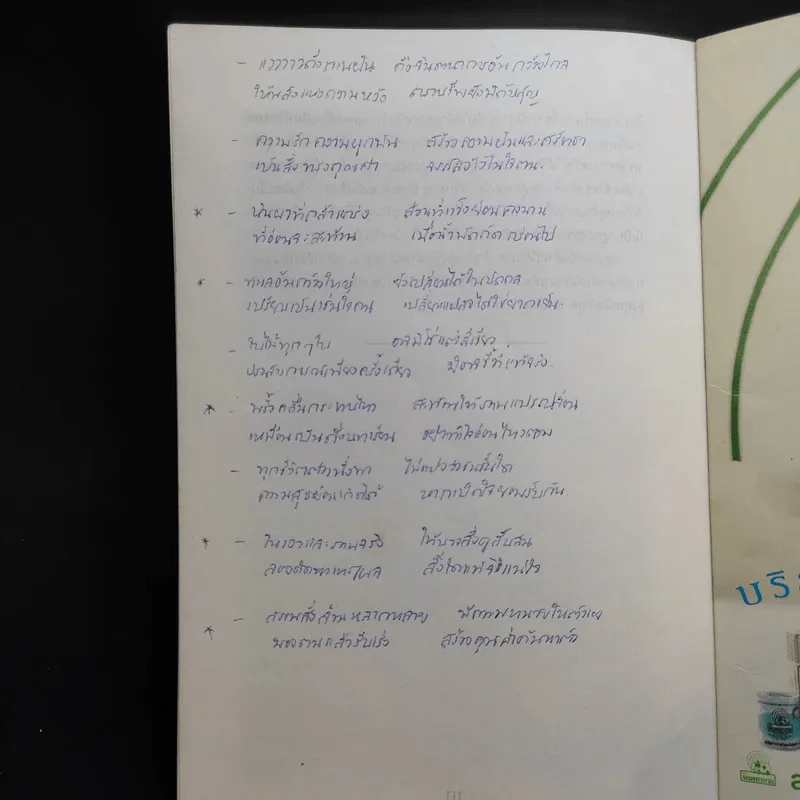 - แววววาวดั่งราเนฝัน คือจินตนาการอัน กว้างไกล
ให้พลังแห่งความหวัง
- ความรัก ความผูกพัน สร้างความฝันและศรัทธา
เป็นสิ่งทรงคุณค่า ไว้ในใจตน.
* - หินผาที่กล้าแข็ง ส่วนที่แข็งย่อมคงนาน
ที่อ่อนจะสะท้าน เมื่อน้ำพัดกัดกร่อนไป
* - ทะเลอันกว้างใหญ่ ยังเปลี่ยนได้ในบัดดล
เปรียบเช่นใจคน เปลี่ยนแปลงได้ใช่ยากเย็น.
- ใบไม้ทุก ๆ ใบ อาจมิใช่แต่สีเขียว
ประสบการณ์เพียงครั้งเดียว มิอาจชี้ที่แท้จริง.
* - พริ้วคลื่นกระทบไหว สะท้อนให้งานแปรเปลี่ยน
เหมือนเป็นดั่งบทเรียน อย่าทำใจอ่อนไหวตาม
- ทุกชีวิตพึ่งพา ไม่แบ่งว่าชาติใด
ความสุขย่อมเกิดได้ หากเปิดใจยอมรับกัน.
* - ในเงาและความจริง ให้บางสิ่งดูสับสน
ลองคิดหาเหตุผล สิ่งใดแท้จริงแน่ใจ
* - สรรพสิ่งล้วนหลากหลาย มีความหมายในตัวเอง
มองตนแล้วรีบเร่ง สร้างคุณค่า
บริ